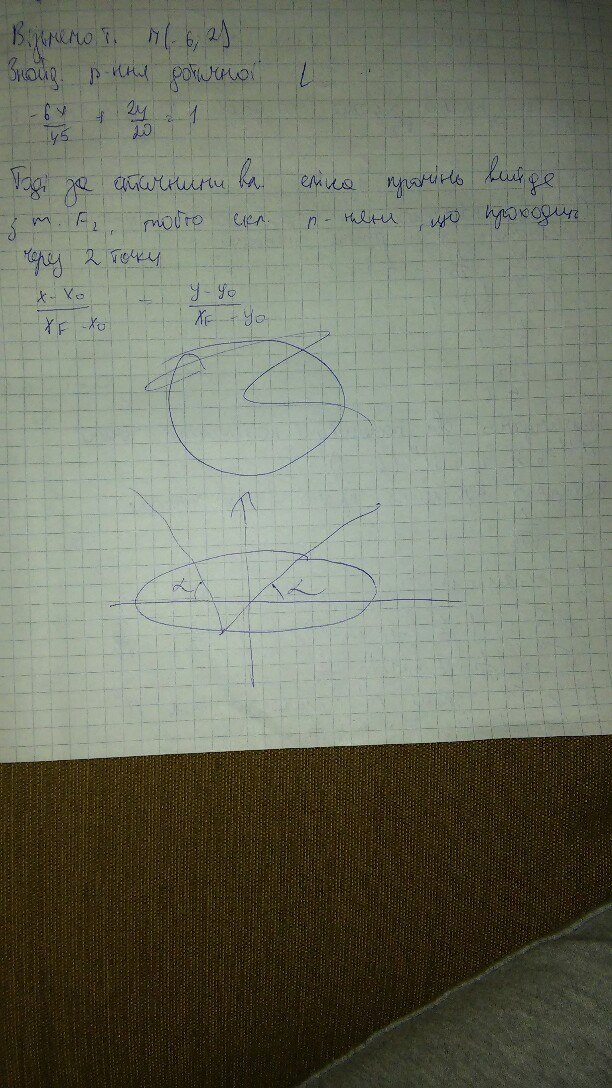 Візьмемо т. M(-6, 2)
Знайд. р-ння дотичної
-6x/45 + 2y/20 = 1
Тоді за оптичними вл. еліпса промінь вийде
з т. F₂, тобто скл. р-ння, що проходить
через 2 точки
x - x₀/x_F - x₀ = y - y₀/x_F - y₀
α α